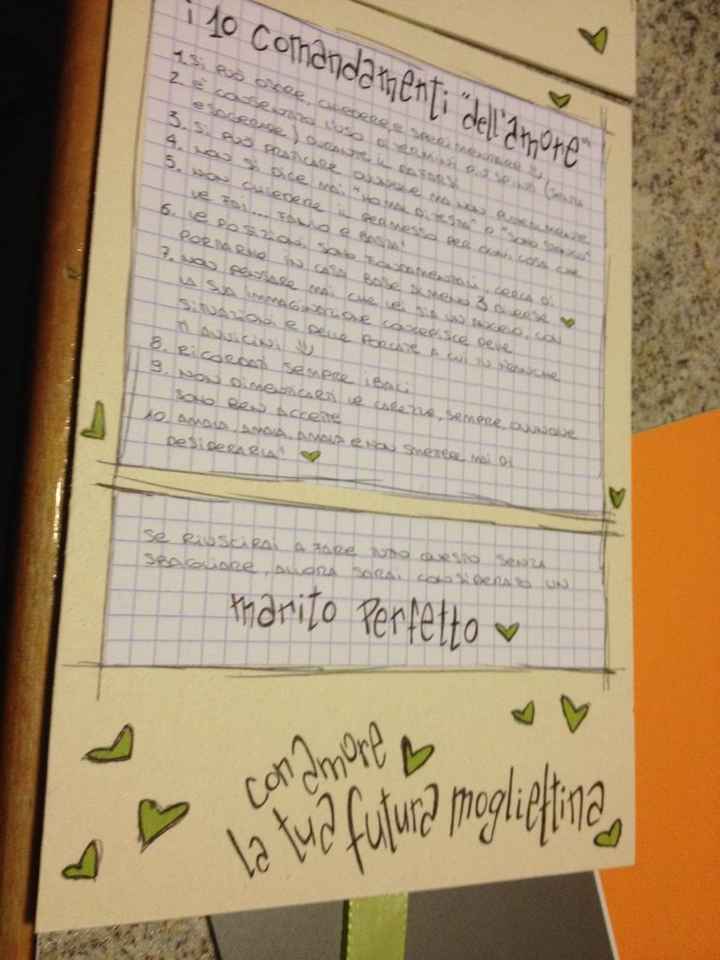 i 10 comandamenti "dell'amore"
1. Si può osare, chiedere, e sperimentare di
2. è consentito l'uso di termini più spinti (senza
esagerare) durante il
3. Si può praticare ovunque ma non
4. non si dice mai "ho mal di testa" o "sono stanco"
5. non chiedere il permesso per ogni cosa che
le fai... fallo e basta!
6. le posizioni sono fondamentali, cerca di
portarne in casa base almeno 3 diverse
7. non pensare mai che lei sia un, con
la sua immaginazione costruisce delle
situazioni e delle porcate a cui tu neanche
ti avvicini
8. ricordati sempre i baci
9. non dimenticarti le carezze, sempre, ovunque
sono ben accette
10. amala, amala, amala e non smettere mai di
desiderarla"
se riuscirai a fare tutto questo senza
sbagliare, allora sarai considerato un
marito perfetto
con amore
la tua futura mogliettina